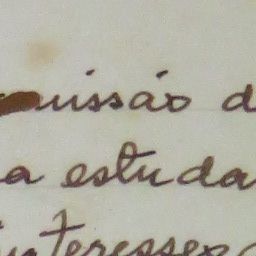 missão d
a estuda
interesses